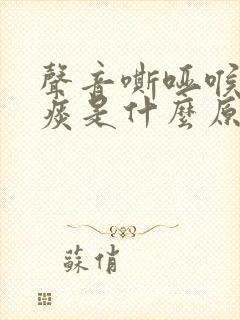 聲音嘶啞喉
痰是什麼原
蘇俏